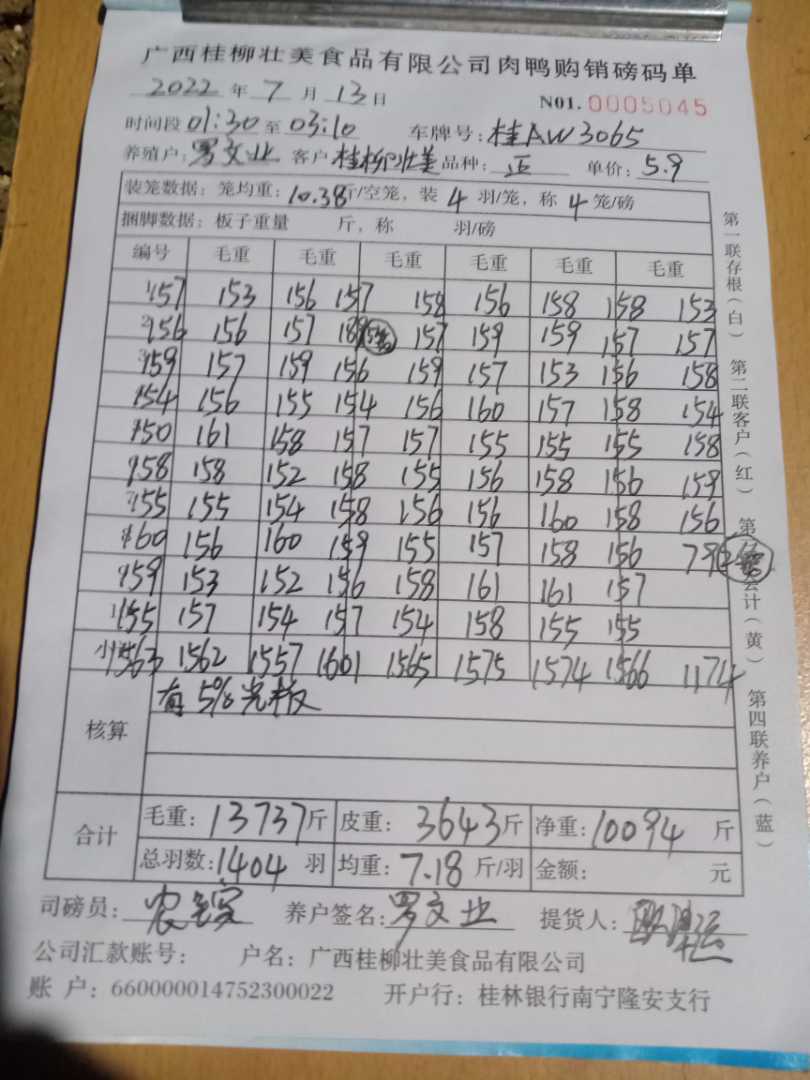 广西桂柳壮美食品有限公司肉鸭购销磅码单
2022 年 7 月 13 日 N01. 0005045
时间段 01:30 至 03:10 车牌号: 桂AW3065
养殖户: 罗文业 客户 桂柳壮美 品种: 正 单价: 5.9
装笼数据: 笼均重: 10.38 斤/空笼, 装 4 羽/笼, 称 4 笼/磅
捆脚数据: 板子重量 斤, 称 羽/磅
编号 毛重 毛重 毛重 毛重 毛重 毛重
157 153 156 157 158 156 158 158 153
156 156 157 189 157 159 159 157 157
159 157 159 156 159 157 153 156 158
154 156 155 154 156 160 157 158 154
150 161 158 157 157 155 155 155 158
158 158 152 158 155 156 158 156 159
155 155 154 158 156 156 160 158 156
160 156 160 159 155 157 158 156 79
159 153 152 156 158 161 161 157
155 157 154 157 154 158 155 155
小计 1563 1562 1557 1601 1565 1575 1574 1566 1174
核算 有 5% 光板
合计 毛重: 13737 斤 皮重: 3643 斤 净重: 10094 斤
总羽数: 1404 羽 均重: 7.18 斤/羽 金额: 元
司磅员: 农 养户签名: 罗文业 提货人:
公司汇款账号: 户名: 广西桂柳壮美食品有限公司
账 户: 660000014752300022 开户行: 桂林银行南宁隆安支行
第一联存根(白) 第二联客户(红) 第 会计(黄) 第四联养户(蓝)